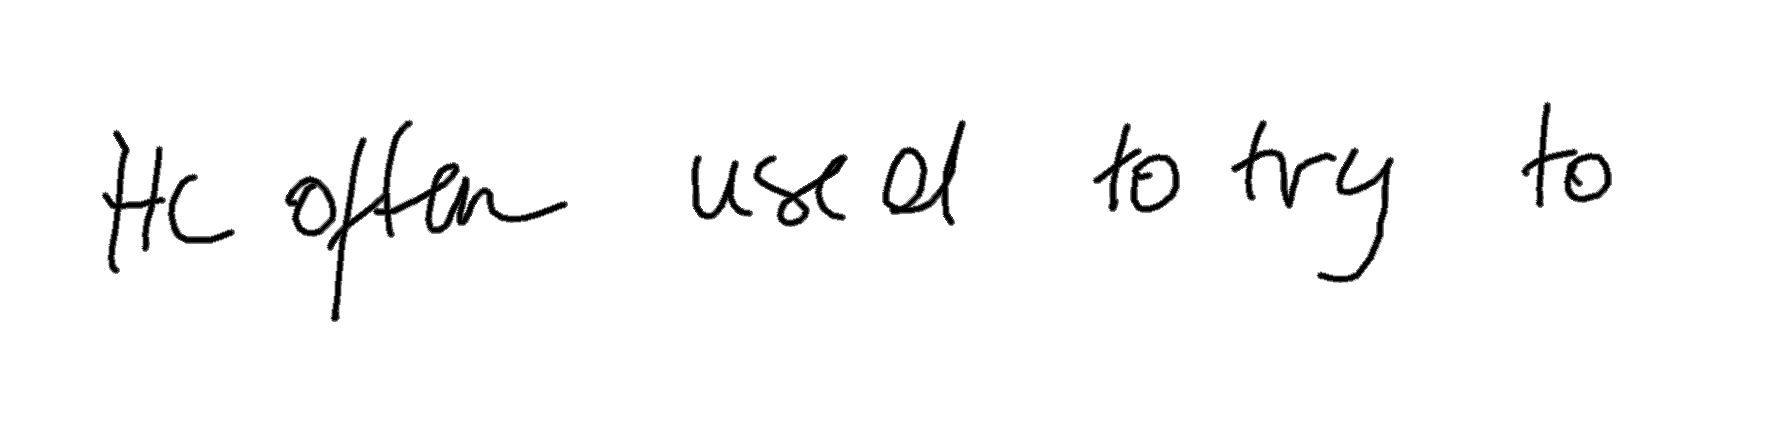 He often used to try to